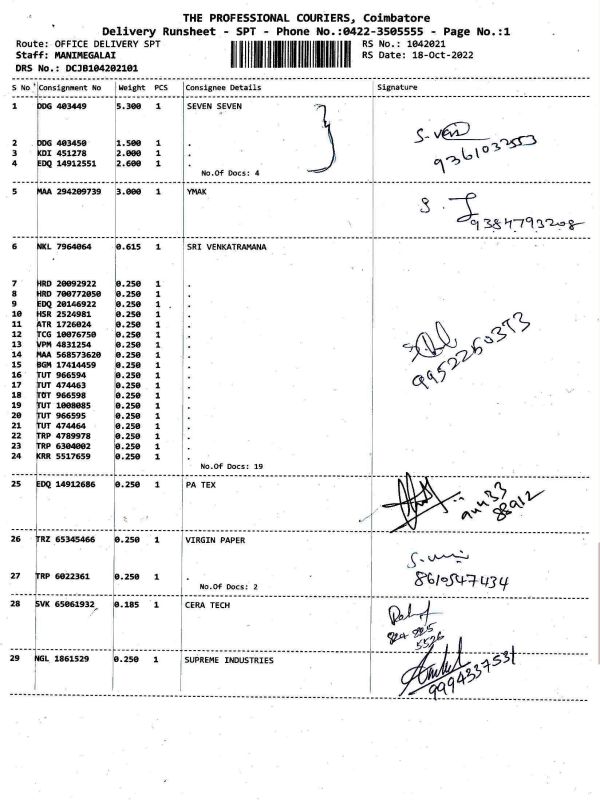 THE PROFESSIONAL COURIERS, Coimbatore
Delivery Runsheet - SPT - Phone No.:0422-3505555 - Page No.:1
Route: OFFICE DELIVERY SPT RS No.: 1042021
Staff: MANIMEGALAI RS Date: 18-Oct-2022
DRS No.: DCJB104202101
S No Consignment No Weight PCS Consignee Details Signature
1 DDG 403449 5.300 1 SEVEN SEVEN
2 DDG 403450 1.500 1 .
3 KDI 451278 2.000 1 .
4 EDQ 14912551 2.600 1 .
No.Of Docs: 4
5 MAA 294209739 3.000 1 YMAK
9384793208
6 NKL 7964064 0.615 1 SRI VENKATRAMANA
7 HRD 20092922 0.250 1 .
8 HRD 700772050 0.250 1 .
9 EDQ 20146922 0.250 1 .
10 HSR 2524981 0.250 1 .
11 ATR 1726024 0.250 1 .
12 TCG 10076750 0.250 1 .
13 VPM 4831254 0.250 1 .
14 MAA 568573620 0.250 1 .
15 BGM 17414459 0.250 1 .
16 TUT 966594 0.250 1 .
17 TUT 474463 0.250 1 .
18 TUT 966598 0.250 1 .
19 TUT 1008085 0.250 1 .
20 TUT 966595 0.250 1 .
21 TUT 474464 0.250 1 .
22 TRP 4789978 0.250 1 .
23 TRP 6304002 0.250 1 .
24 KRR 5517659 0.250 1 .
No.Of Docs: 19
9952260373
25 EDQ 14912686 0.250 1 PA TEX
26 TRZ 65345466 0.250 1 VIRGIN PAPER
27 TRP 6022361 0.250 1 .
No.Of Docs: 2
8610547434
28 SVK 65061932 0.185 1 CERA TECH
29 NGL 1861529 0.250 1 SUPREME INDUSTRIES
9994337531